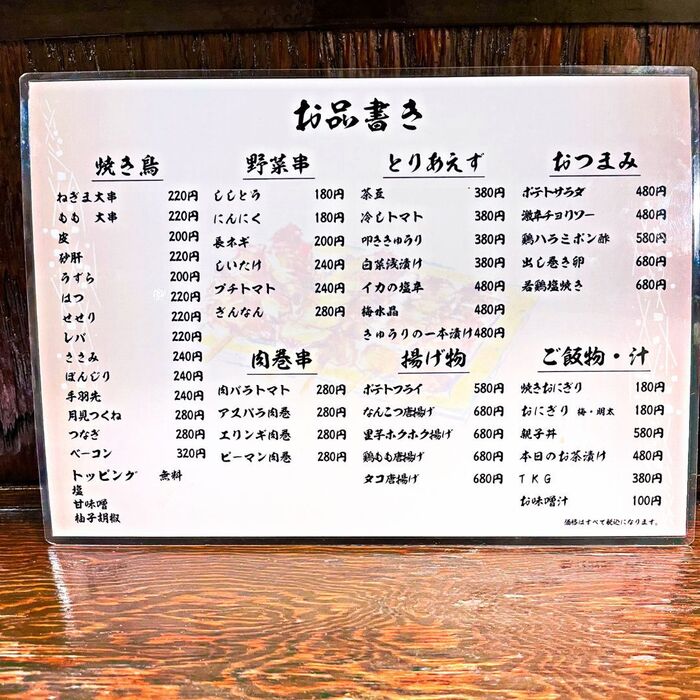 お品書き
焼き鳥
ねぎま大串 220円
もも 大串 220円
皮 200円
砂肝 220円
うずら 200円
はつ 220円
せせり 220円
レバ 220円
ささみ 240円
ぼんじり 240円
手羽先 240円
月見つくね 280円
つなぎ 280円
ベーコン 320円
トッピング 無料
塩
甘味噌
柚子胡椒
野菜串
ししとう 180円
にんにく 180円
長ネギ 200円
しいたけ 240円
プチトマト 240円
ぎんなん 280円
肉巻串
肉バラトマト 280円
アスパラ肉巻 280円
エリンギ肉巻 280円
ピーマン肉巻 280円
とりあえず
茶豆 380円
冷しトマト 380円
叩ききゅうり 380円
白菜浅漬け 380円
イカの塩辛 480円
梅水晶 480円
きゅうりの一本漬け 480円
揚げ物
ポテトフライ 580円
なんこつ唐揚げ 680円
里芋ホクホク揚げ 680円
鶏もも唐揚げ 680円
タコ唐揚げ 680円
おつまみ
ポテトサラダ 480円
激辛チョリソー 480円
鶏ハラミポン酢 580円
出し巻き卵 680円
若鶏塩焼き 680円
ご飯物・汁
焼きおにぎり 180円
おにぎり 梅・明太 180円
親子丼 580円
本日のお茶漬け 480円
TKG 380円
お味噌汁 100円
価格はすべて税込になります。